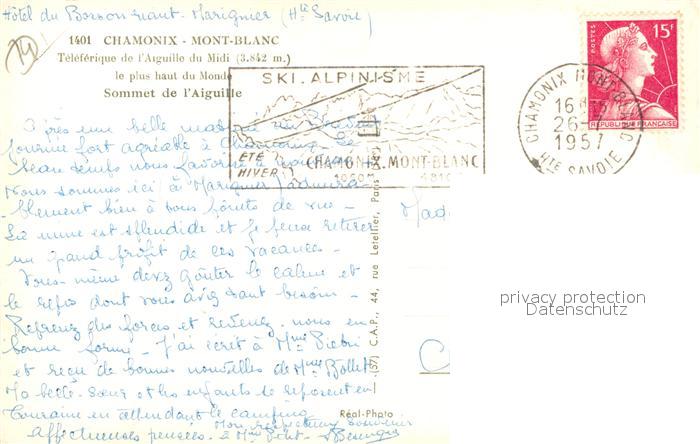 Hôtel du Borson Marignier (Hte Savoie)
1401 CHAMONIX - MONT-BLANC
Téléférique de l'Aiguille du Midi (3.842 m.)
le plus haut du Monde
Sommet de l'Aiguille
SKI. ALPINISME
ÉTÉ
HIVER
CHAMONIX. MONT-BLANC
POSTES
15F
REPUBLIQUE FRANÇAISE
CHAMONIX MONT BLANC
16
26
1957
HTE SAVOIE
Après une belle
journée fort agréable à Chamonix. Le
beau temps nous favorise
Nous sommes ici à Marignier admira-
blement bien à tous points de vue -
La vue est splendide et je pense retirer
un grand profit de ces vacances -
Vous-même devez goûter le calme et
le repos dont vous avez tant besoin -
Reprenez des forces et revenez-nous en
bonne forme - J'ai écrit à Mme
et reçu de bonnes nouvelles de Mme Bollet
Ma belle-soeur et les enfants se reposent en
Touraine en attendant le camping
Affectueuses pensées à Mme
Mon respectueux souvenir
(57) C.A.P., 44, rue Letellier, Paris
Réal-Photo
Mad
C
privacy protection
Datenschutz
14